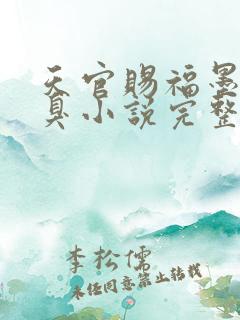 天官赐福墨
真小说完整
李松儒
未经同意禁止转载